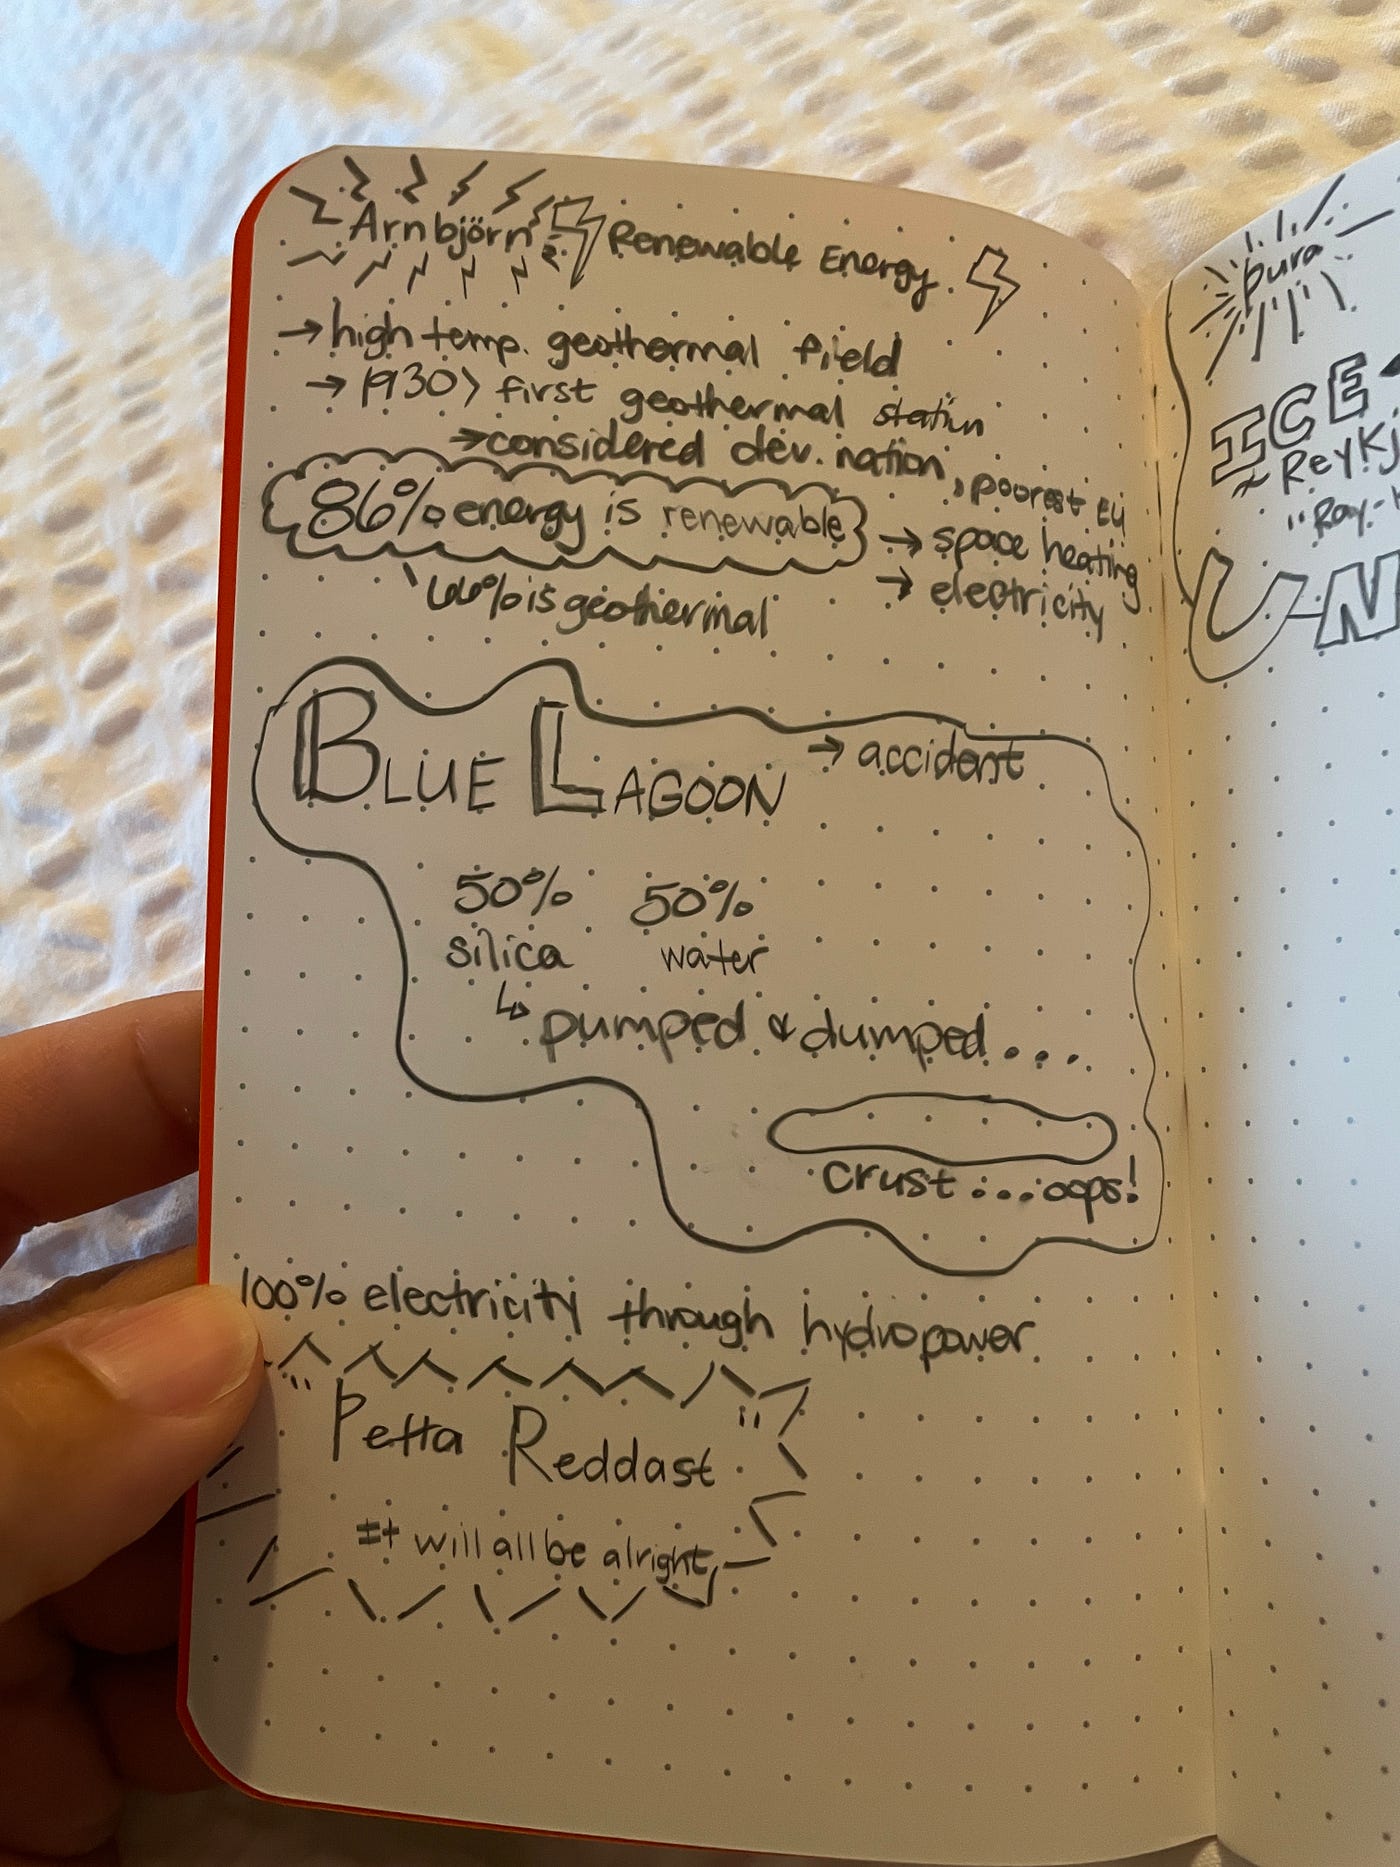 Arnbjörn R. Renewable Energy
→ high temp. geothermal field
→ 1930> first geothermal station
→ considered dev. nation, poorest EU
86% energy is renewable → space heating
→ electricity
66% is geothermal
BLUE LAGOON → accident
50% 50%
silica water
↳ pumped & dumped...
crust...oops!
100% electricity through hydropower
"Petta Reddast"
It will all be alright
pura
ICE
Reykj
"Ray-